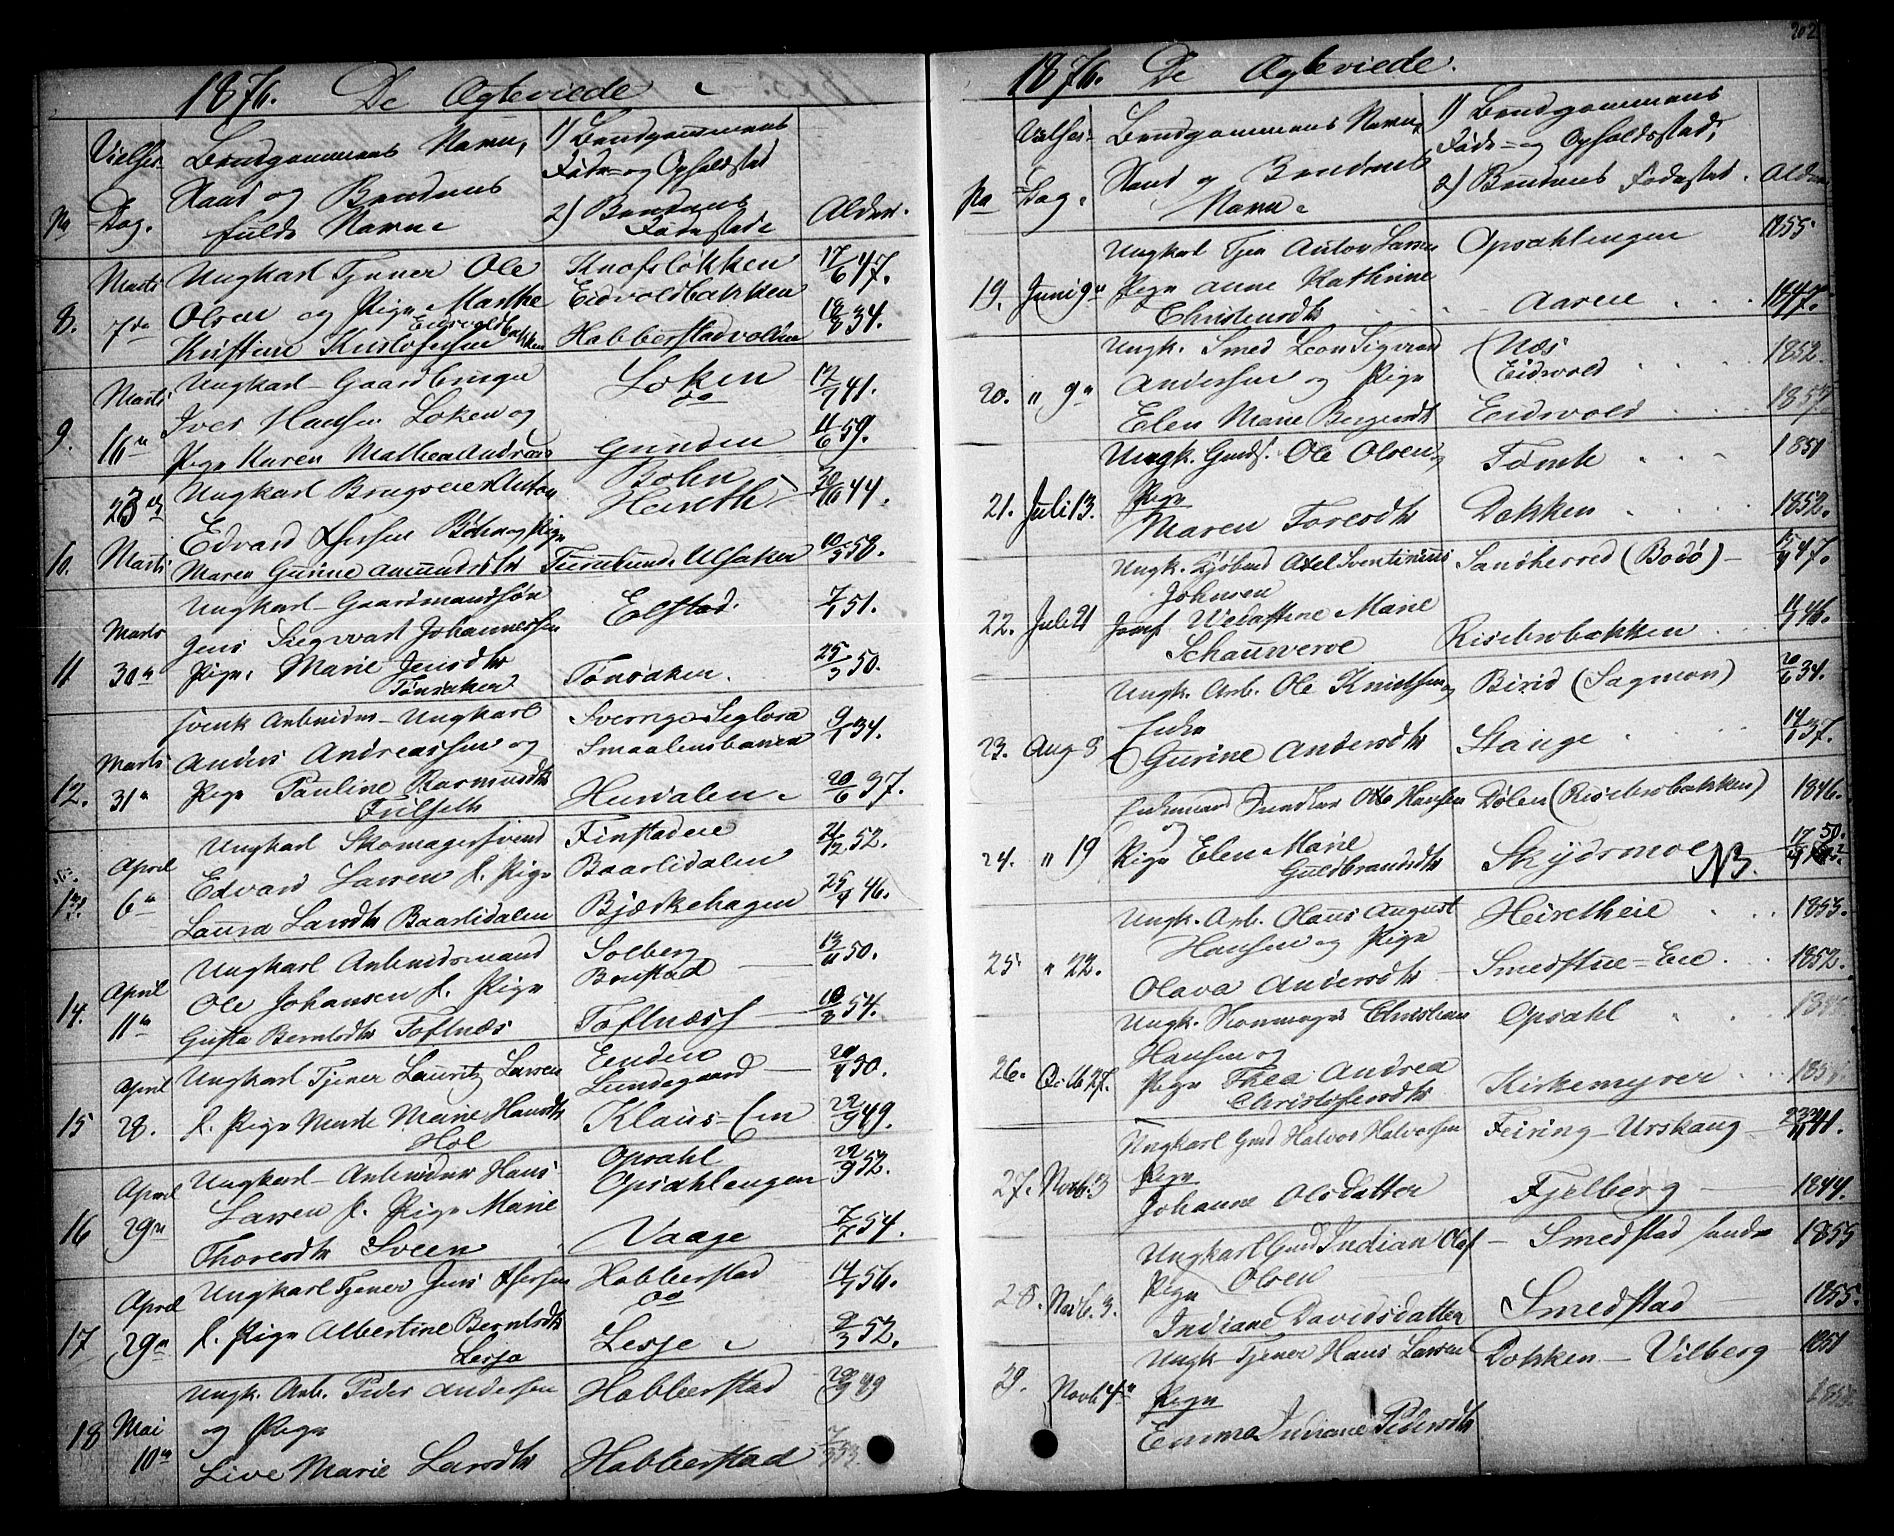 1876. De Ægteviede
No
Vielses-
Dag.
Brudgommens Navn,
Stand og Brudens
fulde Navn
1) Brudgommens
Føde- og Opholdsted
2) Brudens
Fødestede
Alder.
8. Marts 7de
Ungkarl Tjener Ole
Olsen og Pige Marthe
Kristine Kristofersen Eidsvoldbakken
Knofsløkken
Eidvoldbakken
Habberstadvolden
17/6 47.
18/8 34.
9. Marts 16n
Ungkarl Gaardbruger
Iver Hansen Løken og
Pige Karen Mathea Andreas
Løken
do
Grinden
12/7 41.
11/6 59.
10. 23de Marts
Ungkarl Brugseier Anton
Edvard Iversen Bøhn og Pige
Maren Gurine Amundsdtr
Bøhn
Hereth
Ulsaker
20/10 44.
10/5 58.
11 Marts 30n
Ungkarl Gaardmandssøn
Jens Sigvart Johannessen
Pige Marie Jensdtr
Tønsaker
Eolstad.
Tønsaker.
7/1 51.
25/3 50.
12. Marts 31n
svensk Arbeider Ungkarl
Anders Andreassen og
Pige Pauline Rasmusdtr
Fulseth
Sverrige Seglora
Smaalensbanen
Hurdalen
9/1 34.
20/6 37.
13. April 6n
Ungkarl Skomagersvend
Edvard Larsen & Pige
Laura Larsdtr Baarlidalen
Finstadeie
Baarlidalen
Bjerkehagen
21/12 52.
25/4 46.
14. April 11n
Ungkarl Arbeidsmand
Ole Johansen & Pige
Gusta Berntsdtr Toftnæs
Solberg
Bonstad
Toftnæss
13/11 50.
10/3 54.
15 April 28.
Ungkarl Tjener Lauritz Larsen
& Pige Marte Marie Hansdtr
Hol
Lundsgaard
Klaus-Eie
20/4 50.
22/9 49.
16 April 29n
Ungkarl Arbeider Hans
Larsen & Pige Marie
Thoresdtr Sveen
Opsahl
Opsahlengen
Vaage
22/9 52.
7/7 54.
17 April 29n
Ungkarl Tjener Jens Iversen
& Pige Albertine Berntsdtr
Lesja
Habberstad
do
Lesje
14/7 56.
2/3 52.
18 Mai 10n
Ungk. Arb. Peder Andersen
og Pige
Live Marie Larsdtr
Habberstad
Habberstad
1876. De Ægteviede.
202
No
Vielses-
Dag.
Brudgommens Navn,
Stand og Brudens
Navn.
1) Brudgommens
Føde- og Opholdsstad,
2) Brudens Fødested.
Alder
19. Juni 9n
Ungkarl Tjen Anton Larsen
Pige Anne Kathrine
Christensdtr
Opsahlengen
Aarene
1855
1847.
20. " 9n
Ungk. Smed Leon Sigvard
Andersen og Pige
Elen Marie Bergersdtr
(Næs
Eidsvold
Eidsvold
1852.
1857
21. Juli 13.
Ungk. Gmds. Ole Olsen og
Pige
Maren Toresdtr
Tømte
Dokken
1851
1852.
22. Juli 21
Ungk. Axel Sventinius
Johnsen
Jomf. Wedastine Marie
Schauwerve
Sandherred (Bodø)
Risebrobakken
15/4 47.
11/4 46.
23. Aug 8
Ungk. Arb. Ole Knudsen og
Enke
Gurine Andersdtr
Birid (Sagmoen)
Stange
20/6 34.
14/1 37.
24. " 19
Enkemand Otto Hansen
og
Pige Elen Marie
Guldbrandsdtr
Dølen (Risebrobakken)
Skydsmoe NB.
1846.
25 " 22.
Ungk. Arb. Olaus August
Hansen og Pige
Olava Andersdtr
Heiretheie
Smedstue-Eie
1853.
1852.
26. Octb 27.
Ungk. Skomager Christian
Hansen og
Pige Thea Andrea
Christofersdtr
Opsahl
Kirkemyrer
27. Novb. 3
Ungkarl Gmd Halvor Halvorsen
Pige
Johanne Olsdatter
Feiring Urskoug
Fjelberg
1844.
28. Novb. 3.
Ungkarl Gmd Indian Olaf
Olsen
Pige
Indiane Davidsdatter
Smedstad søndre
Smedstad
1855
1855.
29. Novb 4n
Ungk. Tjener Hans Larsen
Pige
Emma Indiane Pedersdtr
Dokken Vilberg
1851
1858.